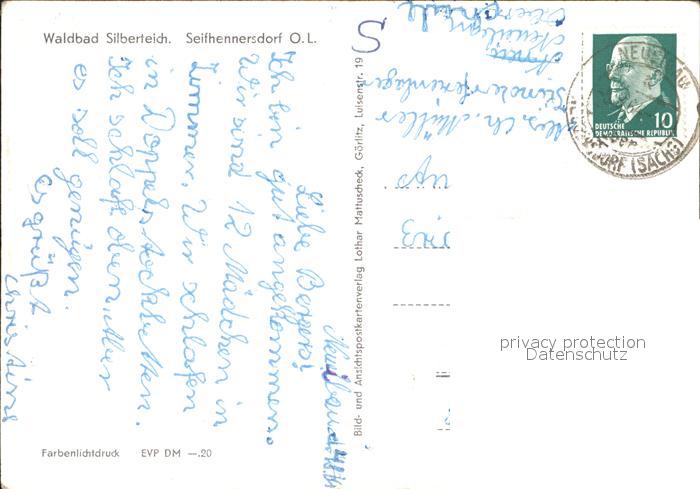 Waldbad Silberteich. Seifhennersdorf O.L.
S
Abs. Ch. Müller
Oberschule
Liebe Bergers!
Ich bin gut angekommen.
Wir sind 12 Mädchen in
Zimmer. Wir schlafen
in Doppelstockbetten.
Ich schlafe oben, aber
es soll genügen.
Es grüßt
Christine
Bild- und Ansichtspostkartenverlag Lothar Mattuscheck, Görlitz, Luisenstr. 19
DEUTSCHE
DEMOKRATISCHE REPUBLIK
10
DORF (SACHS)
privacy protection
Datenschutz
Farbenlichtdruck EVP DM —.20